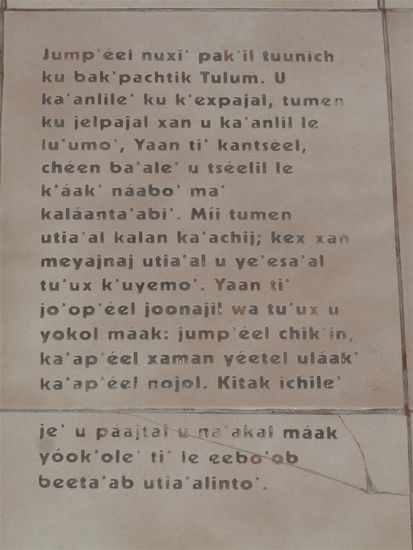 Jump'éel nuxi' pak'il tuunich
ku bak'pachtik Tulum. U
ka'anlile' ku k'expajal, tumen
ku jelpajal xan u ka'anlil le
lu'umo', Yaan ti' kantséel,
chéen ba'ale' u tséelil le
k'áak' náabo' ma'
kaláanta'abi'. Míi tumen
utia'al kalan ka'achij; kex xan
meyajnaj utia'al u ye'esa'al
tu'ux k'uyemo'. Yaan ti'
jo'op'éel joonajil wa tu'ux u
yokol máak: jump'éel chik'in,
ka'ap'éel xaman yéetel uláak'
ka'ap'éel nojol. Kitak ichile'
je' u páajtal u na'akal máak
yóok'ole' ti' le eebo'ob
beeta'ab utia'alinto'.